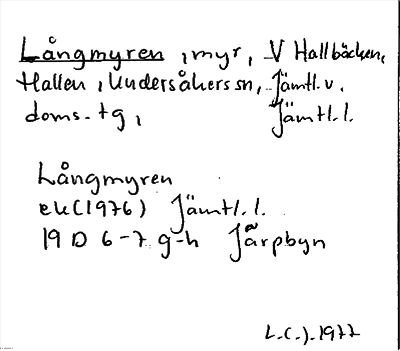 Långmyren, myr, V Hallbäcken,
Hallen, Undersåkers sn, Jämtl. v.
doms.-tg, Jämtl. l.
Långmyren
ek(1976) Jämtl. l.
19 D 6-7 g-h Järpbyn
L.C.J. 1977